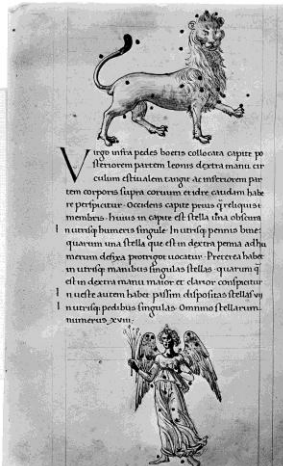 Virgo infra pedes boetis collocata capite po
steriorem partem leonis dextra manu cir
culum estiualem tangit ac inferiorem par
tem corporis supra coruum et idre caudam habe
re perspicitur · Occidens capite prius q̃ reliquis
membris · huius in capite est stella una obscura
In utrisq; humeris singule · In utrisq; pennis bine:
quarum una stella que est in dextra penna ad hu
merum defixa protriget uocatur · Preterea habet
in utrisq; manibus singulas stellas · quarum q̃
est in dextra manu maior et clarior conspicitur
In ueste autem habet passim dispositas stellas vii
In utrisq; pedibus singulas · Omnino stellarum
numerus xviii ·